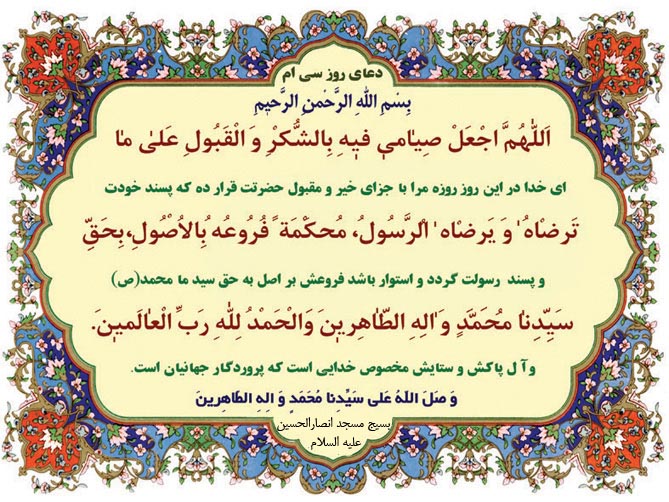 دعای روز سی ام
بِسْمِ اللهِ الرَّحْمنِ الرَّحیمِ
اَللّهُمَّ اجْعَلْ صِیامی فیهِ بِالشُّکْرِ وَ الْقَبُولِ عَلیٰ ما
ای خدا در این روز روزه مرا با جزای خیر و مقبول حضرتت قرار ده که پسند خودت
تَرضاهُ وَ یَرضاه الرَّسُولُ، مُحکْمَةً فُرُوعُه بِالاُصُولِ، بِحَقِّ
و پسند رسولت گردد و استوار باشد فروعش بر اصل به حق سید ما محمد(ص)
سَیِّدِنا مُحَمَّدٍ وَالِهِ الطّاهِرینَ وَالْحَمْدُ لِلّٰهِ رَبِّ الْعالَمینَ.
و آل پاکش و ستایش مخصوص خدایی است که پروردگار جهانیان است.
وَ صَلَ اللهُ عَلی سَیِّدِنا مُحَمَدٍ وَ الِهِ الطاهِرینَ
بسیج مسجد انصارالحسین
علیه السلام